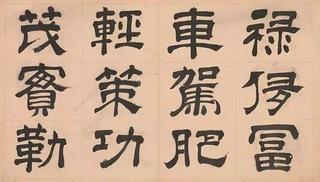 禄侈富
車駕肥
輕策功
茂實勒